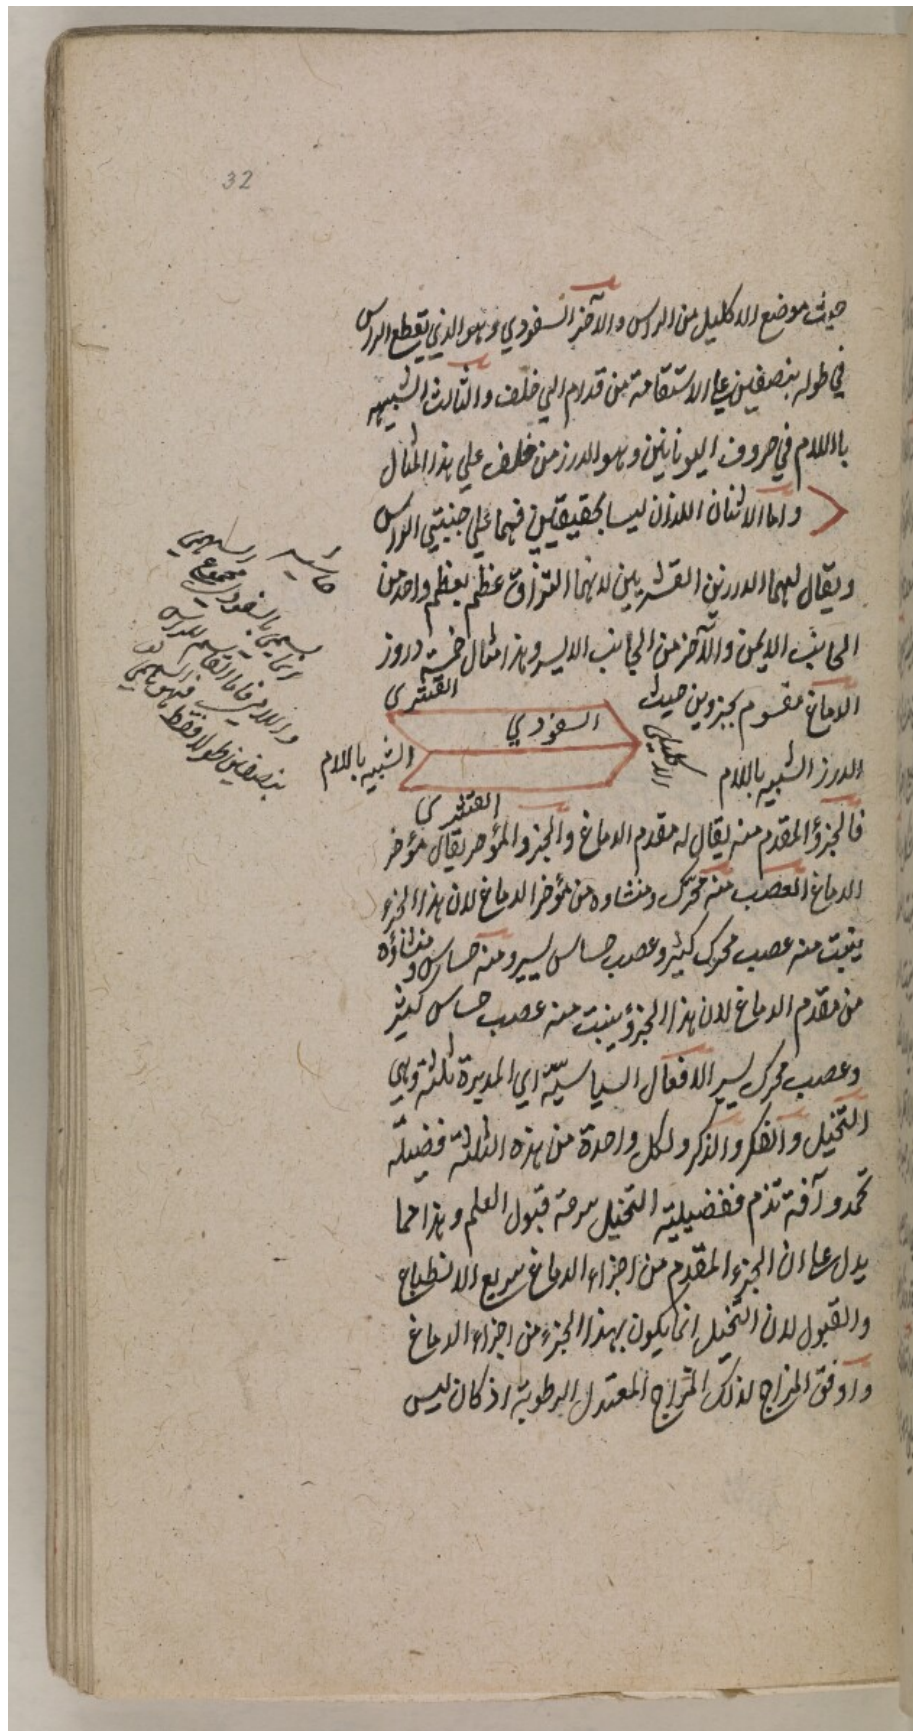 32
حيث موضع الاكليل من الراس والآخر السفودي وهو الذي يقطع الراس
في طوله بنصفين علي الاستقامة من قدام الي خلف والثالث الشبيه
باللام في حروف اليونانين وهو الدرز من خلف علي هذا المثال
واما الاثنان اللذان ليسا بحقيقيين فهما علي جنبتي الراس
ويقال لهما الدرزين القشريين لانهما التزاق عظم بعظم واحد من
الجانب الايمن والآخر من الجانب الايسر وهذا مثال خمسة دروز
القشري
الدماغ مقسوم بجزوين حيث
السفودي
الاكليلي
الشبيه باللام
الدرز الشبيه باللام
القشري
فالجزؤ المقدم منه يقال له مقدم الدماغ والجزو المؤخر يقال مؤخر
الدماغ العصب منه محرك ومنشاوه من مؤخر الدماغ لان هذا الجزء
ينبت منه عصب محرك كثير وعصب حساس يسير ومنه حساس ومنشاؤه
من مقدم الدماغ لان هذا الجزؤ ينبت منه عصب حساس كثير
وعصب محرك يسير الافعال السياسية اي المدبرة ثلثة وهي
التخيل والفكر والذكر ولكل واحدة من هذه الثلاثة فضيلة
تحمد وآفة تذم ففضيلة التخيل سرعة قبول العلم وهذا مما
يدل علي ان الجزء المقدم من اجزاء الدماغ سريع الانطباع
والقبول لان التخيل انما يكون بهذا الجزء من اجزاء الدماغ
واوفق المزاج لذلك المزاج المعتدل الرطوبة اذ كان ليس
حاشيه
انما يسمي بالسفودي مجموع السهمي
واللامي فاما القاسم للراس
بنصفين طولا فقط فهو